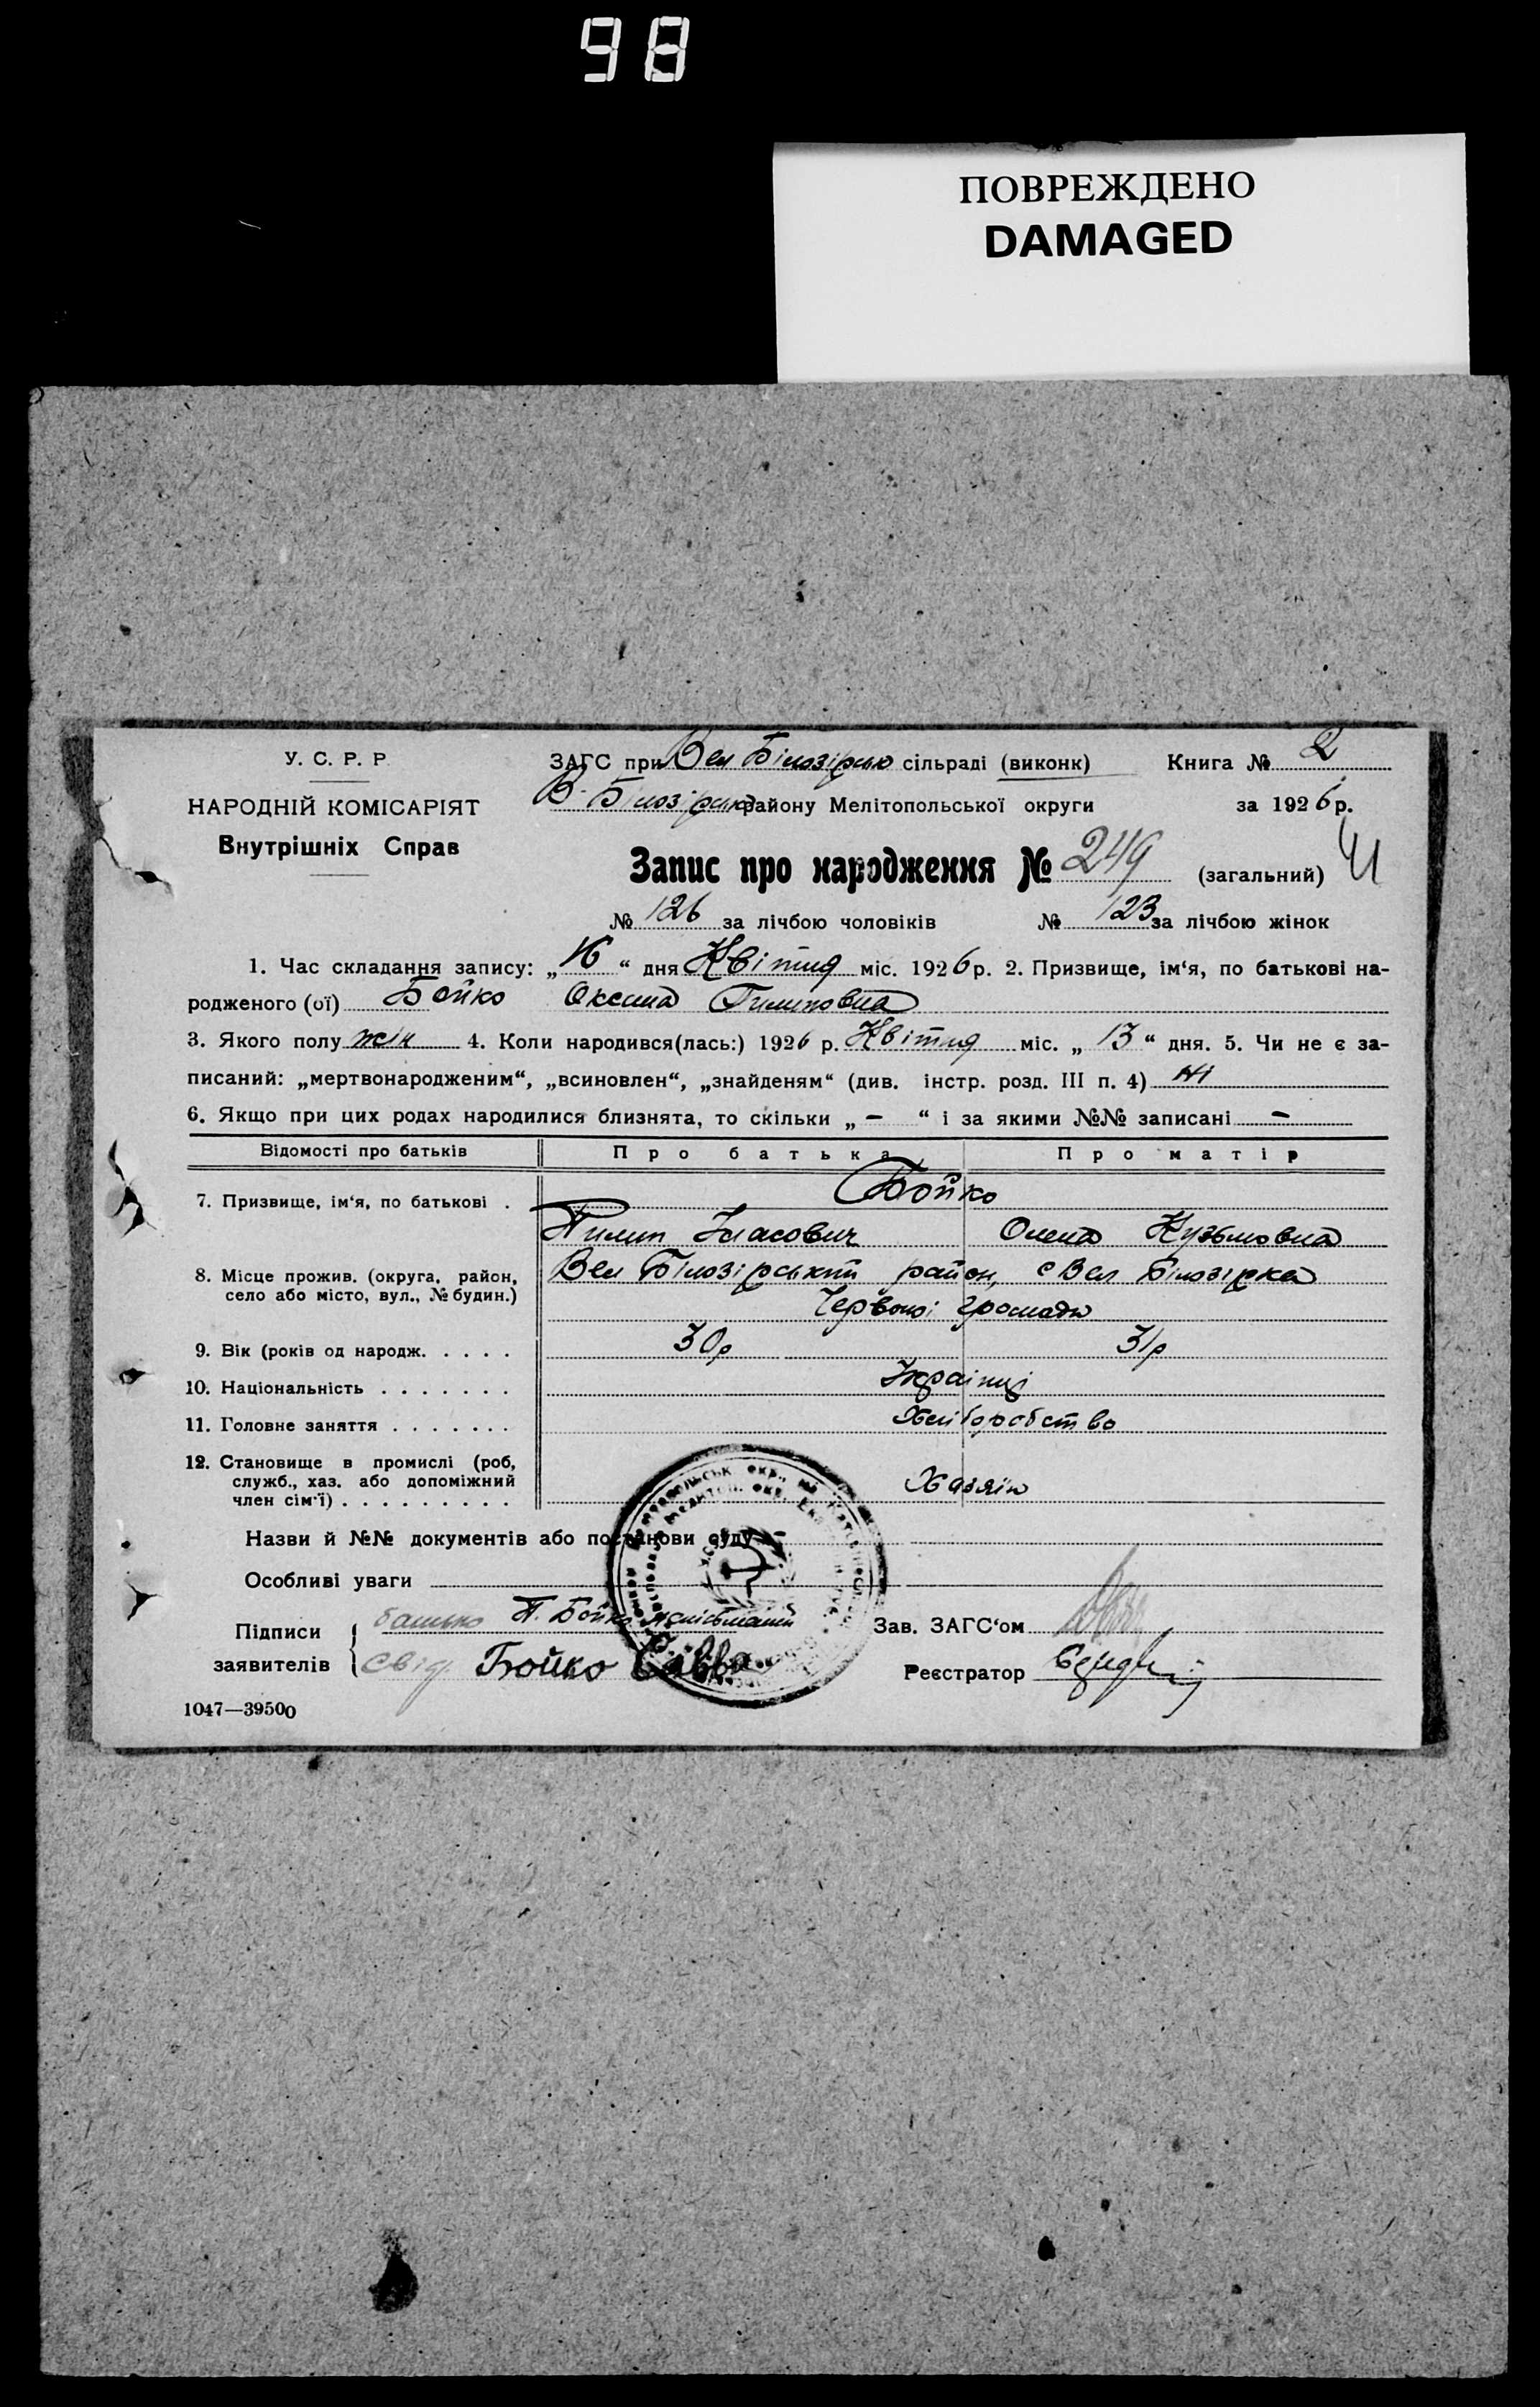 98
ПОВРЕЖДЕНО
DAMAGED
У. С. Р. Р
НАРОДНІЙ КОМІСАРІЯТ
Внутрішніх Справ
ЗАГС при Вел Білозірсько сільраді (виконк) Книга № 2
В. Білозірськ району Мелітопольської округи за 1926 р.
Запис про народження № 249 (загальний) 41
№ 126 за лічбою чоловіків № 123 за лічбою жінок
1. Час складання запису: „16“ дня Квітня міс. 1926 р. 2. Призвище, ім‘я, по батькові на-
родженого (ої) Бойко Оксана Пилиповна
3. Якого полу жін 4. Коли народився(лась:) 1926 р. Квітня міс. „13“ дня. 5. Чи не є за-
писаний: „мертвонародженим“, „всиновлен“, „знайденям“ (див. інстр. розд. III п. 4) ні
6. Якщо при цих родах народилися близнята, то скільки „ – “ і за якими №№ записані –
Відомості про батьків Про батька Про матір
7. Призвище, ім‘я, по батькові . Бойко
Пилип Власович Олена Кузьмовна
8. Місце прожив. (округа, район, Вел Білозірський район, с Вел Білозірка
село або місто, вул., № будин.)
Червоної громади
9. Вік (років од народж. . . . . 30р 31р
10. Національність . . . . . . . Українці
11. Головне заняття . . . . . . . Хліборобство
12. Становище в промислі (роб,
служб., хаз. або допоміжний Хазяїн
член сім‘ї) . . . . . . . . .
Назви й №№ документів або постанови суду –
Особливі уваги
Підписи батько П. Бойко Зав. ЗАГС‘ом
заявителів свід. Бойко Савва Реєстратор
1047—39500